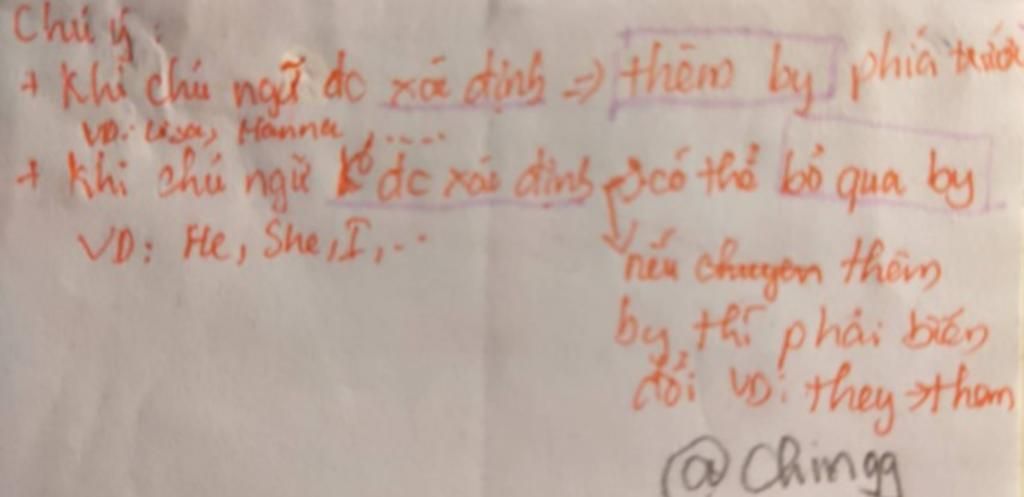 Chú ý:
+ Khi chủ ngữ đc xác định => thêm by phía trước
VD: Lisa, Hanna, .....
+ Khi chủ ngữ k° đc xác định -> có thể bỏ qua by
VD: He, She, I, ...
nếu chuyên thêm
by thì phải biến
đổi VD: they -> them
@Chingg